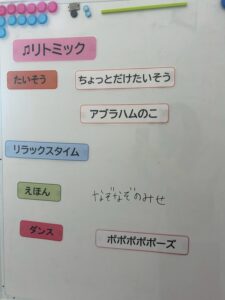 ♫リトミック
たいそう ちょっとだけたいそう
アブラハムのこ
リラックスタイム
えほん なぞなぞのみせ
ダンス ポポポポポーズ